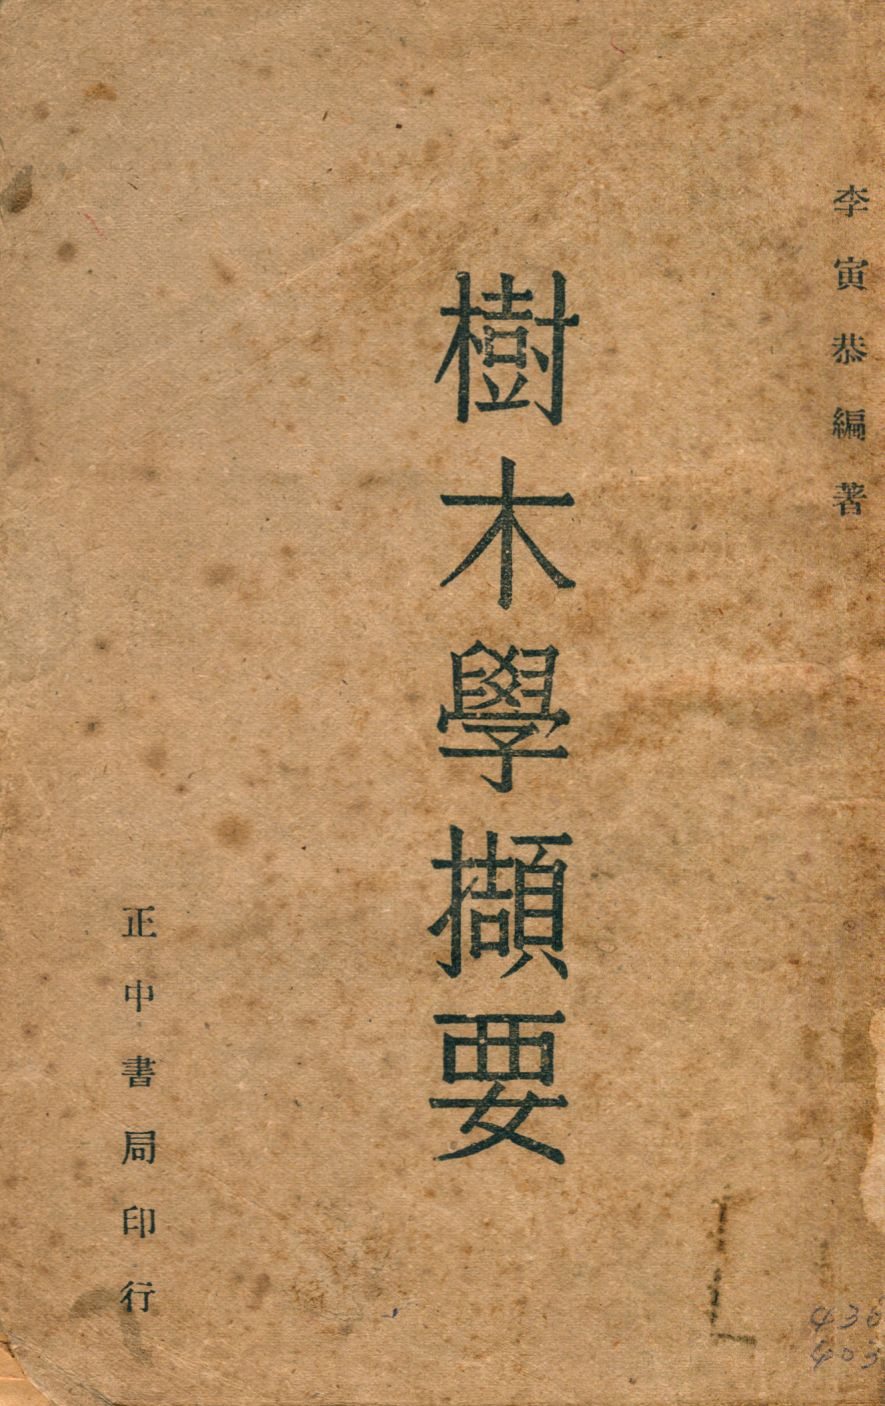 李寅恭編著
樹木學擷要
正中書局印行
403